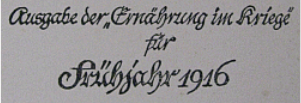 Ausgabe der „Ernährung im Kriege“
für
Frühjahr 1916